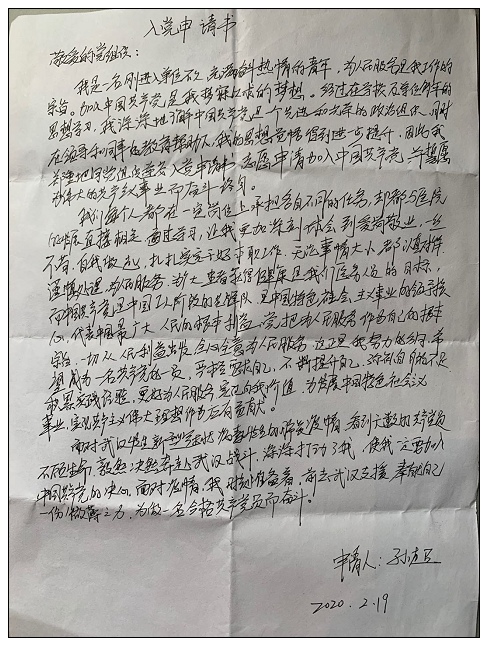 入党申请书
敬爱的党组织:
我是一名刚进入单位不久充满奋斗热情的青年,为人民服务是我工作的
宗旨。加入中国共产党是我梦寐以求的梦想。经过在学校及单位多年的
思想学习,我深深地了解中国共产党是一个先进和光荣的政治组织,同时
在领导和同事的教育帮助下,我的思想觉悟得到进一步提升,因此我
郑重地向党组织递交入党申请书,志愿申请加入中国共产党,并愿意
为伟大的共产主义事业而奋斗终身。
我们每个人都在一定岗位上承担各自不同的任务,却都与医院
的发展直接相关,通过学习,让我更加深刻体会到爱岗敬业,一丝
不苟,自我做起,扎扎实实干好本职工作,无论事情大小,都认真对待,
谨慎处理,为人民服务,为广大患者谋健康是我们医务人员的目标,
而中国共产党是中国工人阶级的先锋队,是中国特色社会主义事业的领导核
心,代表中国最广大人民的根本利益,党把为人民服务作为自己的根本
宗旨,一切从人民利益出发,全心全意为人民服务,这正是我努力的方向,希
望成为一名共产党的一员,
积累实践经验,更好为人民服务,实现自我价值,为发展中国特色社会主义
事业,实现共产主义伟大理想作出应有贡献。
面对武汉发生新型冠状病毒感染的肺炎疫情,看到大量的共产党员
不顾生命,毅然决然奔赴武汉战斗,深深打动了我,使我一定要加入
中国共产党的决心,面对疫情,我时刻准备着,前去武汉支援,奉献自己
一份微薄之力,为做一名合格共产党员而奋斗。
申请人:孙
2020.2.19